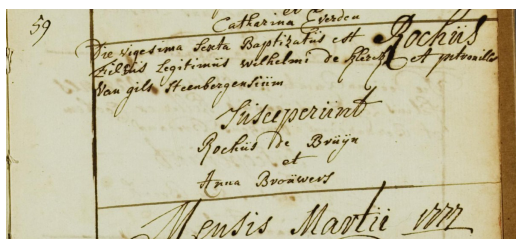 et
Catharina Everden
59
Die vigesima Sexta Baptizatus est Rochus
filius Legitimus Wilhelmi de klerck et petronilla
Van gils Steenbergensium
Susceperunt
Rochus de Bruÿn
et
Anna Brouwers
Mensis Martii 1777